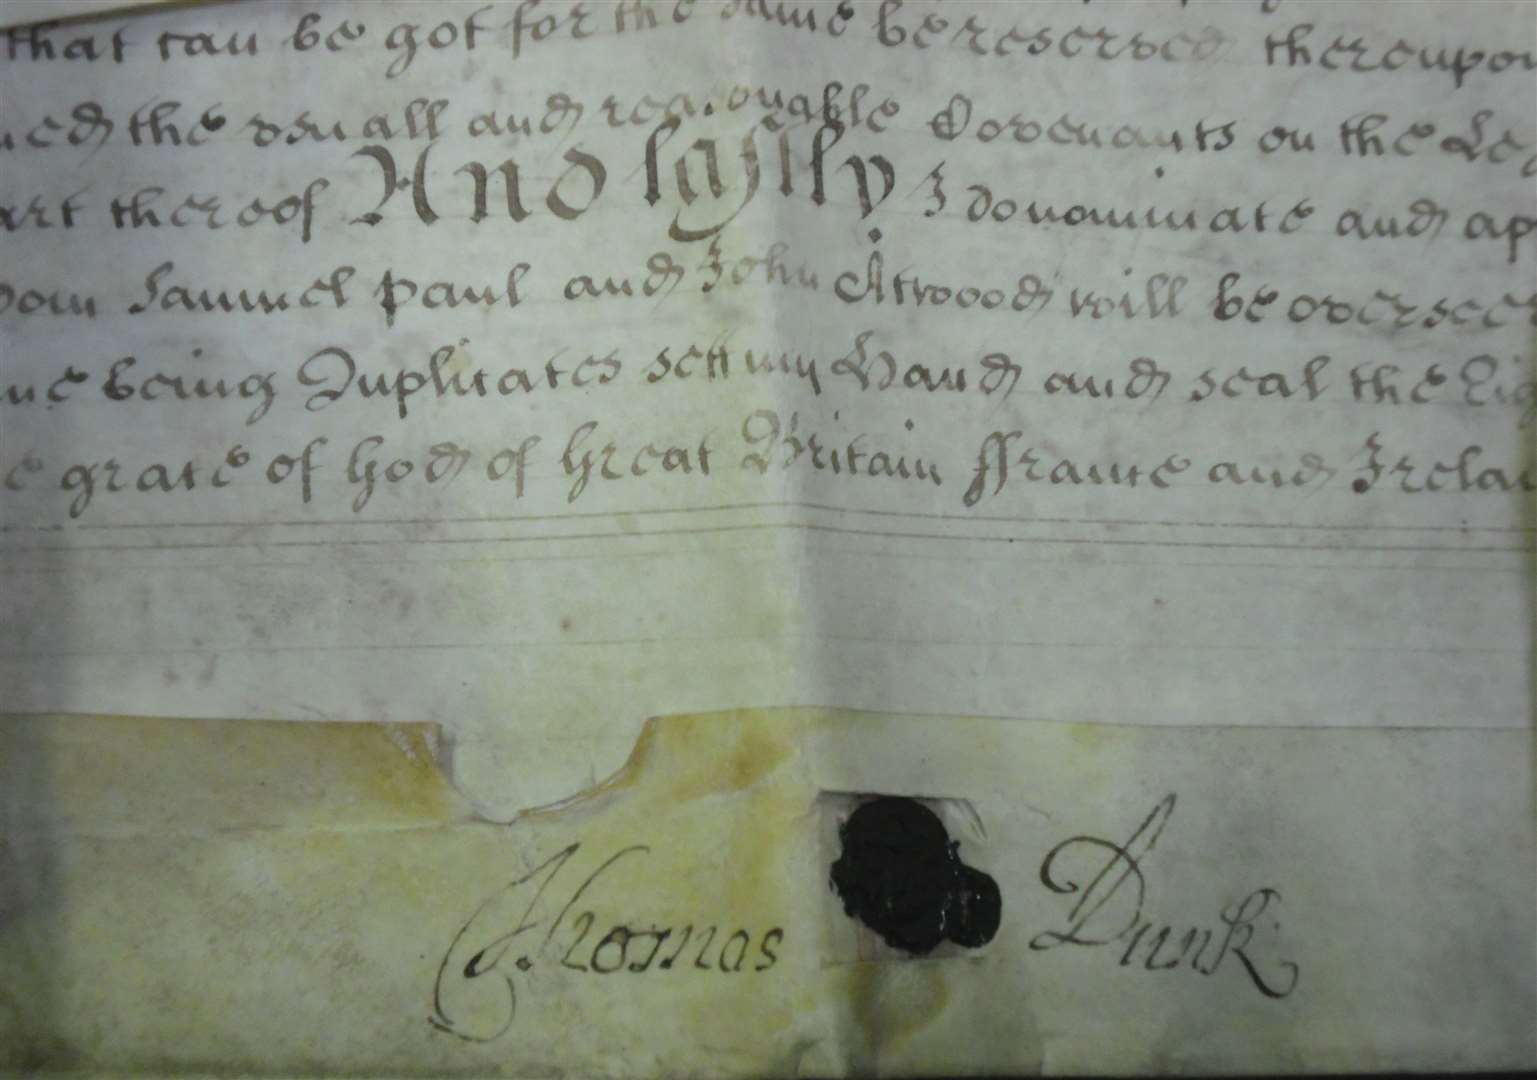 that can be got for the same be reserved thereupon
the usuall and reasonable Covenants on the
thereof And lastly I do nominate and
Samuel Paul and John Atwood will be overseer
being Duplicates sett my Hand and seal the
grace of God of Great Britain ffrance and Irelan
Thomas Dunk